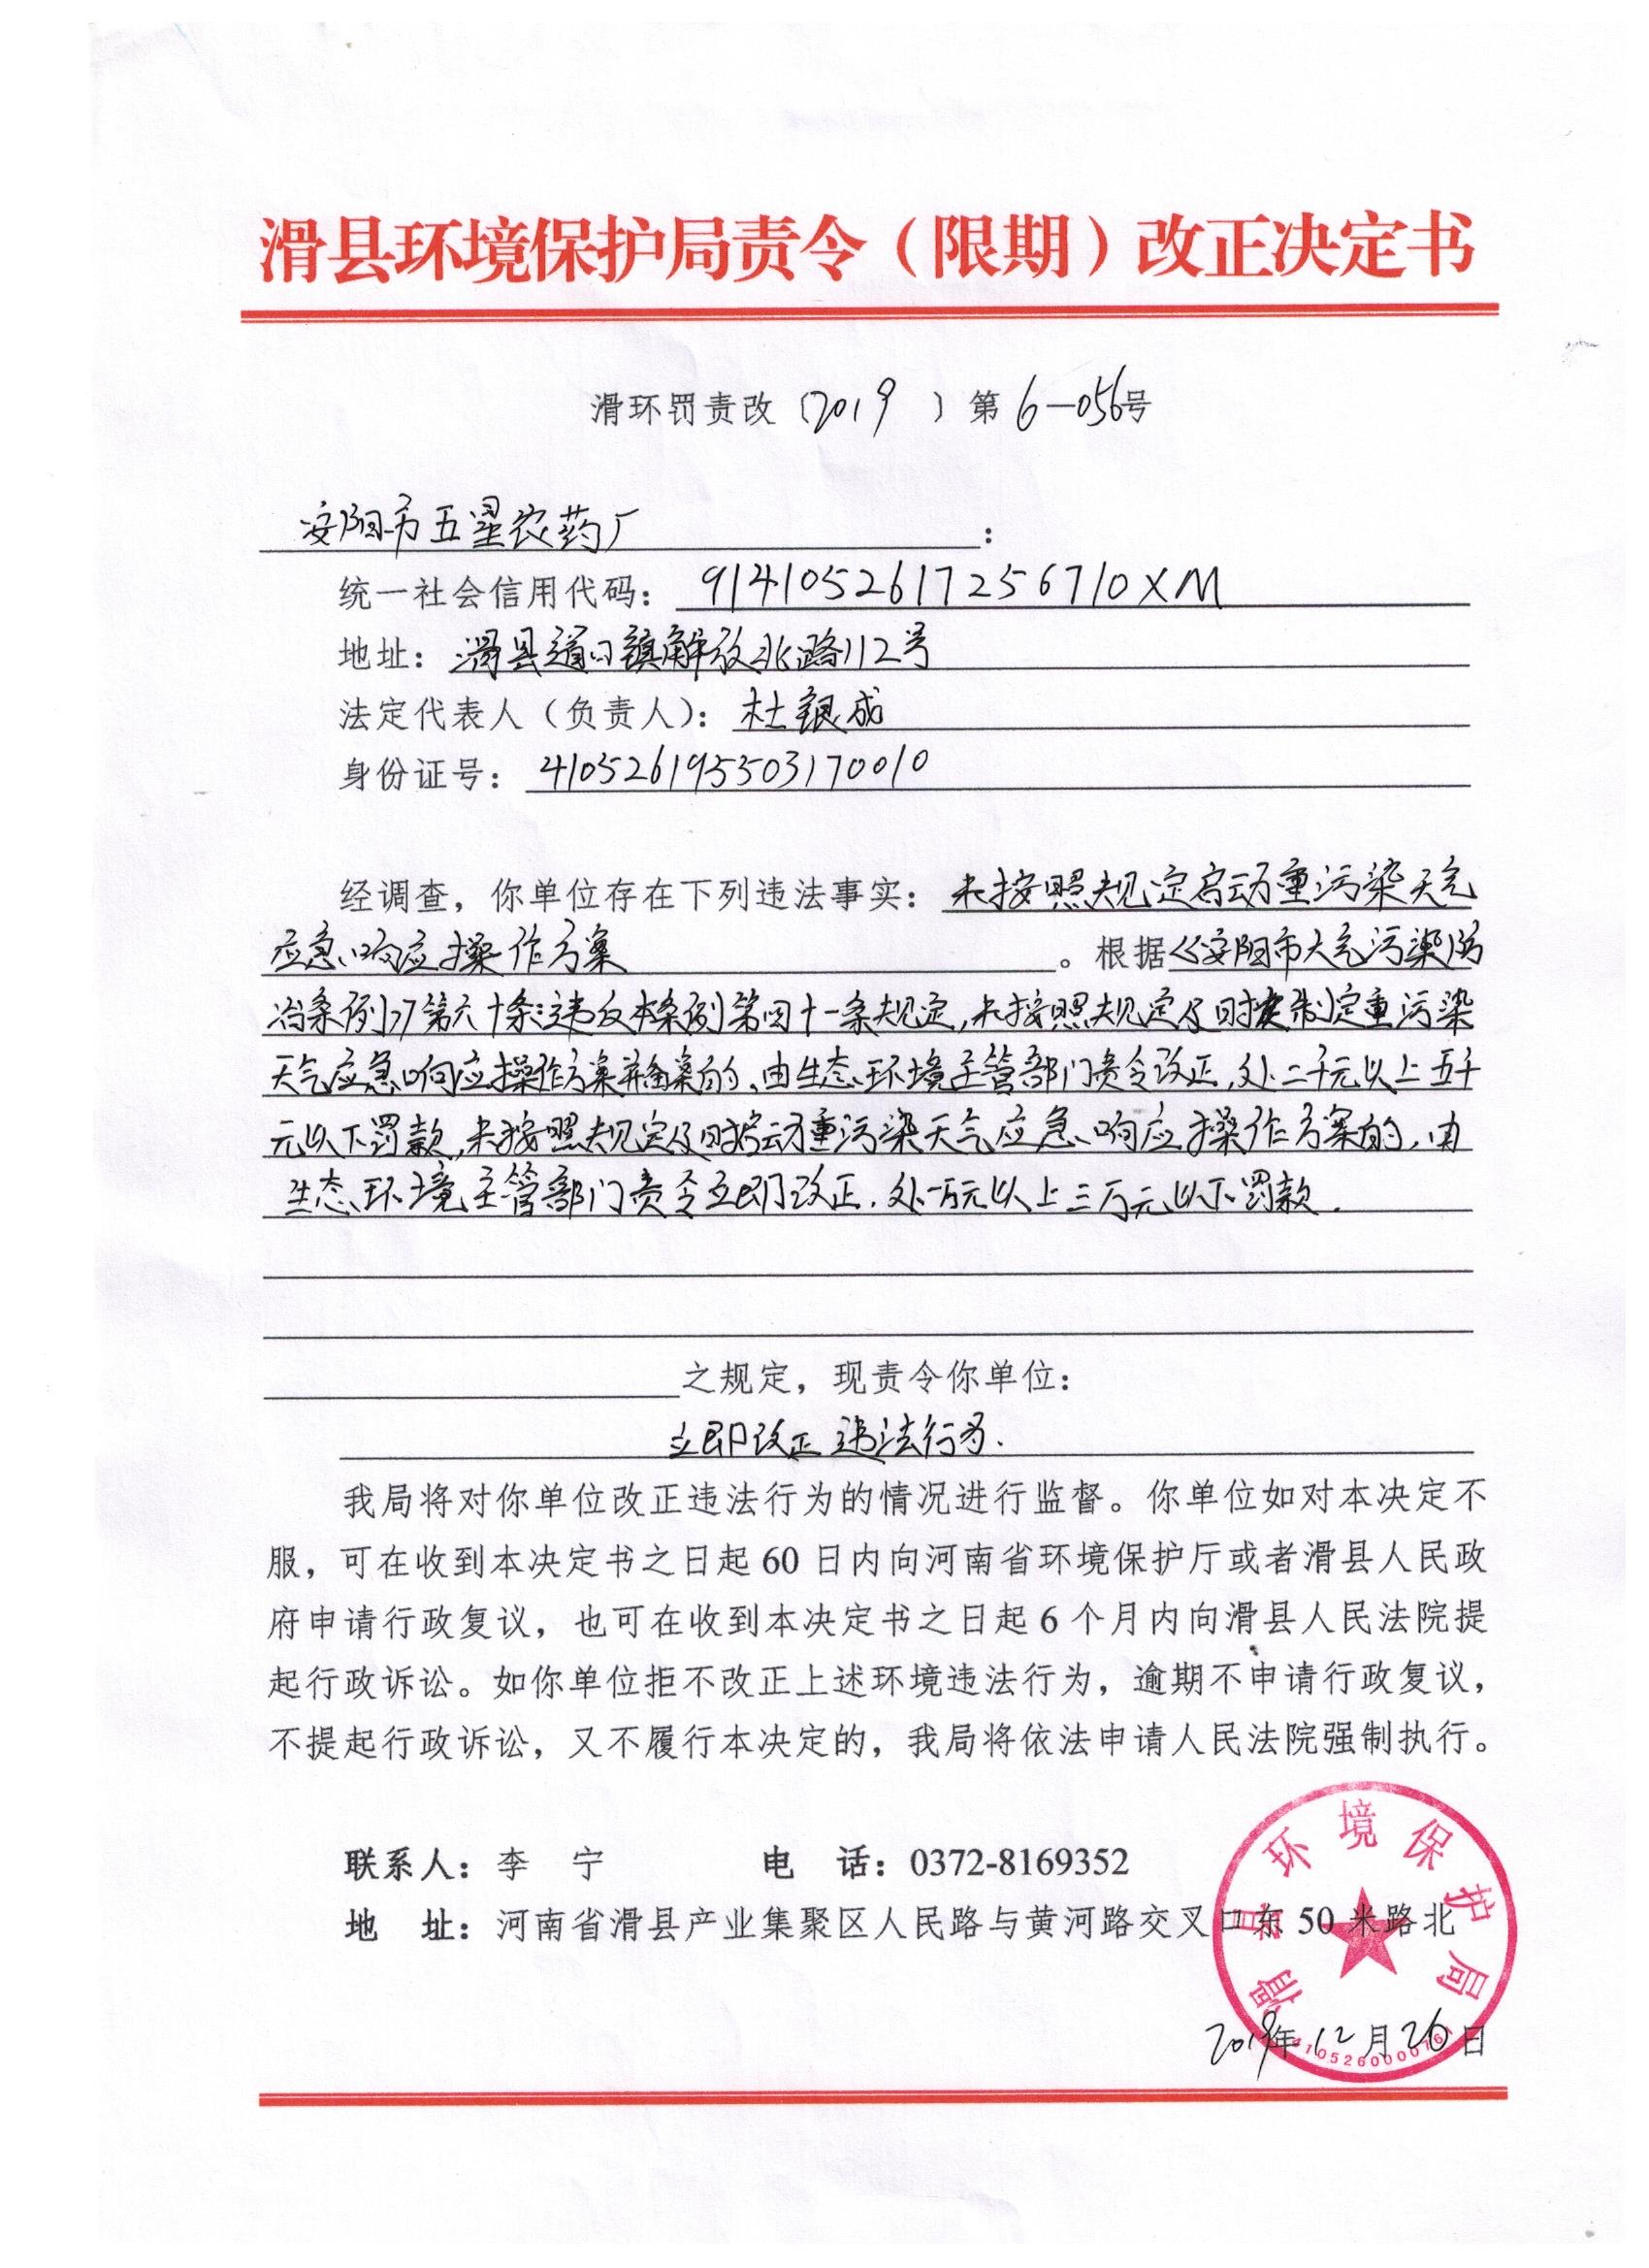 滑县环境保护局责令（限期）改正决定书
滑环罚责改〔2019 〕第6-056号
安阳市五星农药厂：
统一社会信用代码：9141052617256710XM
地址：滑县道口镇解放北路112号
法定代表人（负责人）：杜银成
身份证号：410526195503170010
经调查，你单位存在下列违法事实：未按照规定启动重污染天气
应急响应操作方案。根据《安阳市大气污染防
治条例》第六十条：违反本条例第四十一条规定，未按照规定及时制定重污染
天气应急响应操作方案并备案的，由生态环境主管部门责令改正，处二千元以上五千
元以下罚款，未按照规定及时启动重污染天气应急响应操作方案的，由
生态环境主管部门责令立即改正，处一万元以上三万元以下罚款.
之规定，现责令你单位：
立即改正违法行为.
我局将对你单位改正违法行为的情况进行监督。你单位如对本决定不
服，可在收到本决定书之日起60日内向河南省环境保护厅或者滑县人民政
府申请行政复议，也可在收到本决定书之日起6个月内向滑县人民法院提
起行政诉讼。如你单位拒不改正上述环境违法行为，逾期不申请行政复议，
不提起行政诉讼，又不履行本决定的，我局将依法申请人民法院强制执行。
联系人：李 宁 电 话：0372-8169352
地 址：河南省滑县产业集聚区人民路与黄河路交叉口东50米路北
滑县环境保护局
2019年12月26日